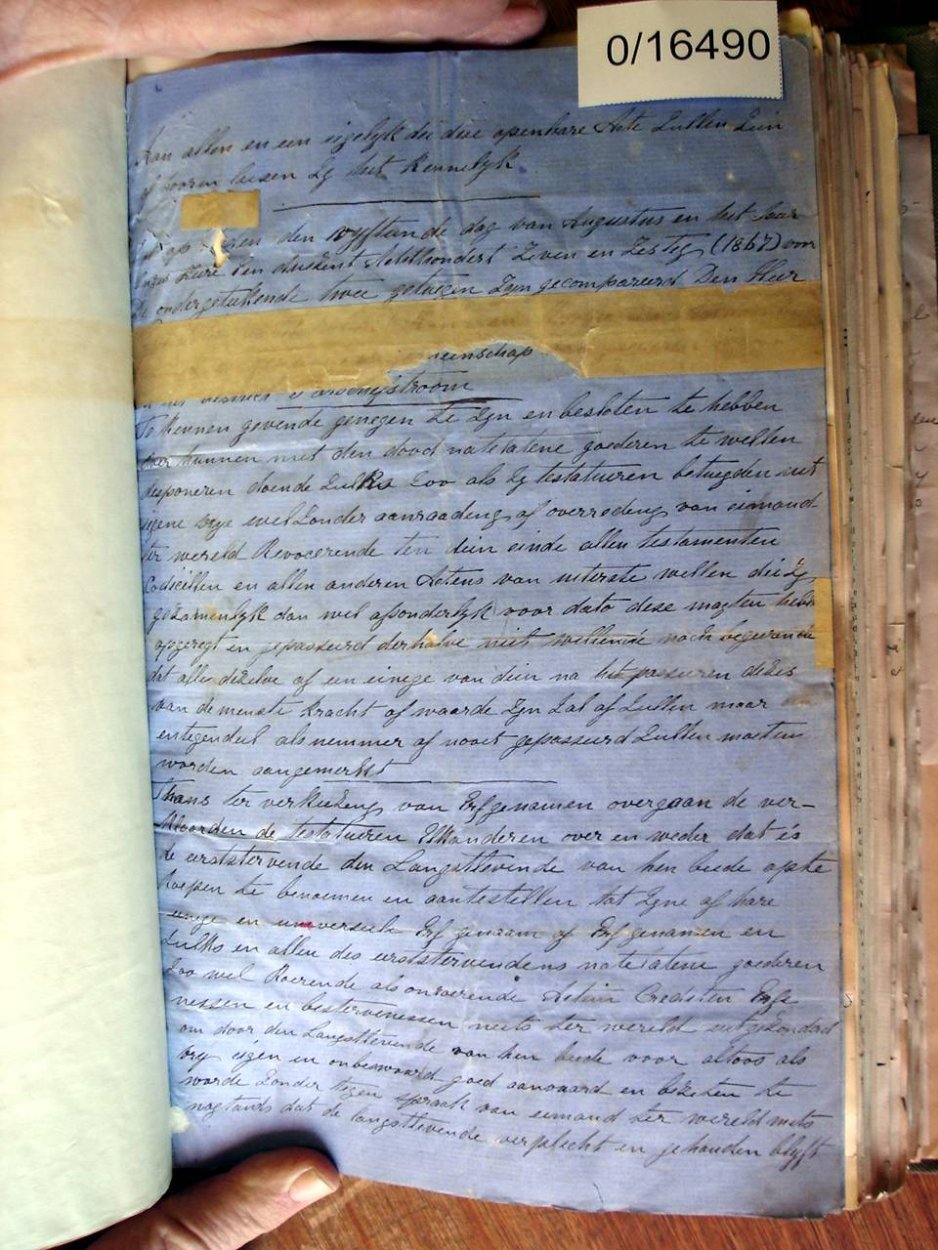 0/16490
Aan allen en een igelyk die dese openbare Acte Zullen Zien
of hooren leesen Zy het Kennelyk
op den vyftiende dag van Augustus en het Jaar
onzes Heere Een duizent Achthondert Zeven en Zestig (1867) voor
de ondergetekende twee getuigen Zyn gecompareerd Den Heer
eenschap
district
Te Kennen gevende genegen te Zyn en besloten te hebben
over hunnen met den dood natelatene goederen te willen
desponeren doende Zulks Zoo als Zy testatuiren betuigden uit
eigene vrye wil Zonder aanraading of overreding van eimand
ter wereld Revocerende ten dien einde allen testamenten
Codicillen en allen anderen Actens van uiterste willen die Zy
gezamenlyk dan wel afsonderlyk voor dato dese mogten hebben
opgeregt en gepasseerd derhalve niet willende noch begeerende
dat alle dezelve of en einege van dien na het passeren dezes
van de menste kracht of waarde Zyn Zal of Zullen maar
entegendeel als nemmer of nooit gepasseerd Zullen moeten
worden aangemerkt
Thans ter verkiezing van Erfgenamen overgaan de ver-
klaarden de testatueren Malkanderen over en weder dat is
de eerststervende den Langstlevende van hen beide op te
Roepen te benoemen en aantestellen tot Zyne of hare
einege en universeele Erfgenaam of Erfgenamen en
Zulks en allen des eerststervendens natelatene goederen
Zoo wel Roerende als onroerende Actien Credieten Erfe
nessen en bestervenessen niets ter wereld uitgezonderd
om door den Langstlevende van hen beide voor altoos als
vry eigen en onbeswaard goed aanvaard en bezeten te
worde Zonder tegen spraak van eimand ter wereld mits
nogtands dat de langstlevende verplecht en gehouden blyft